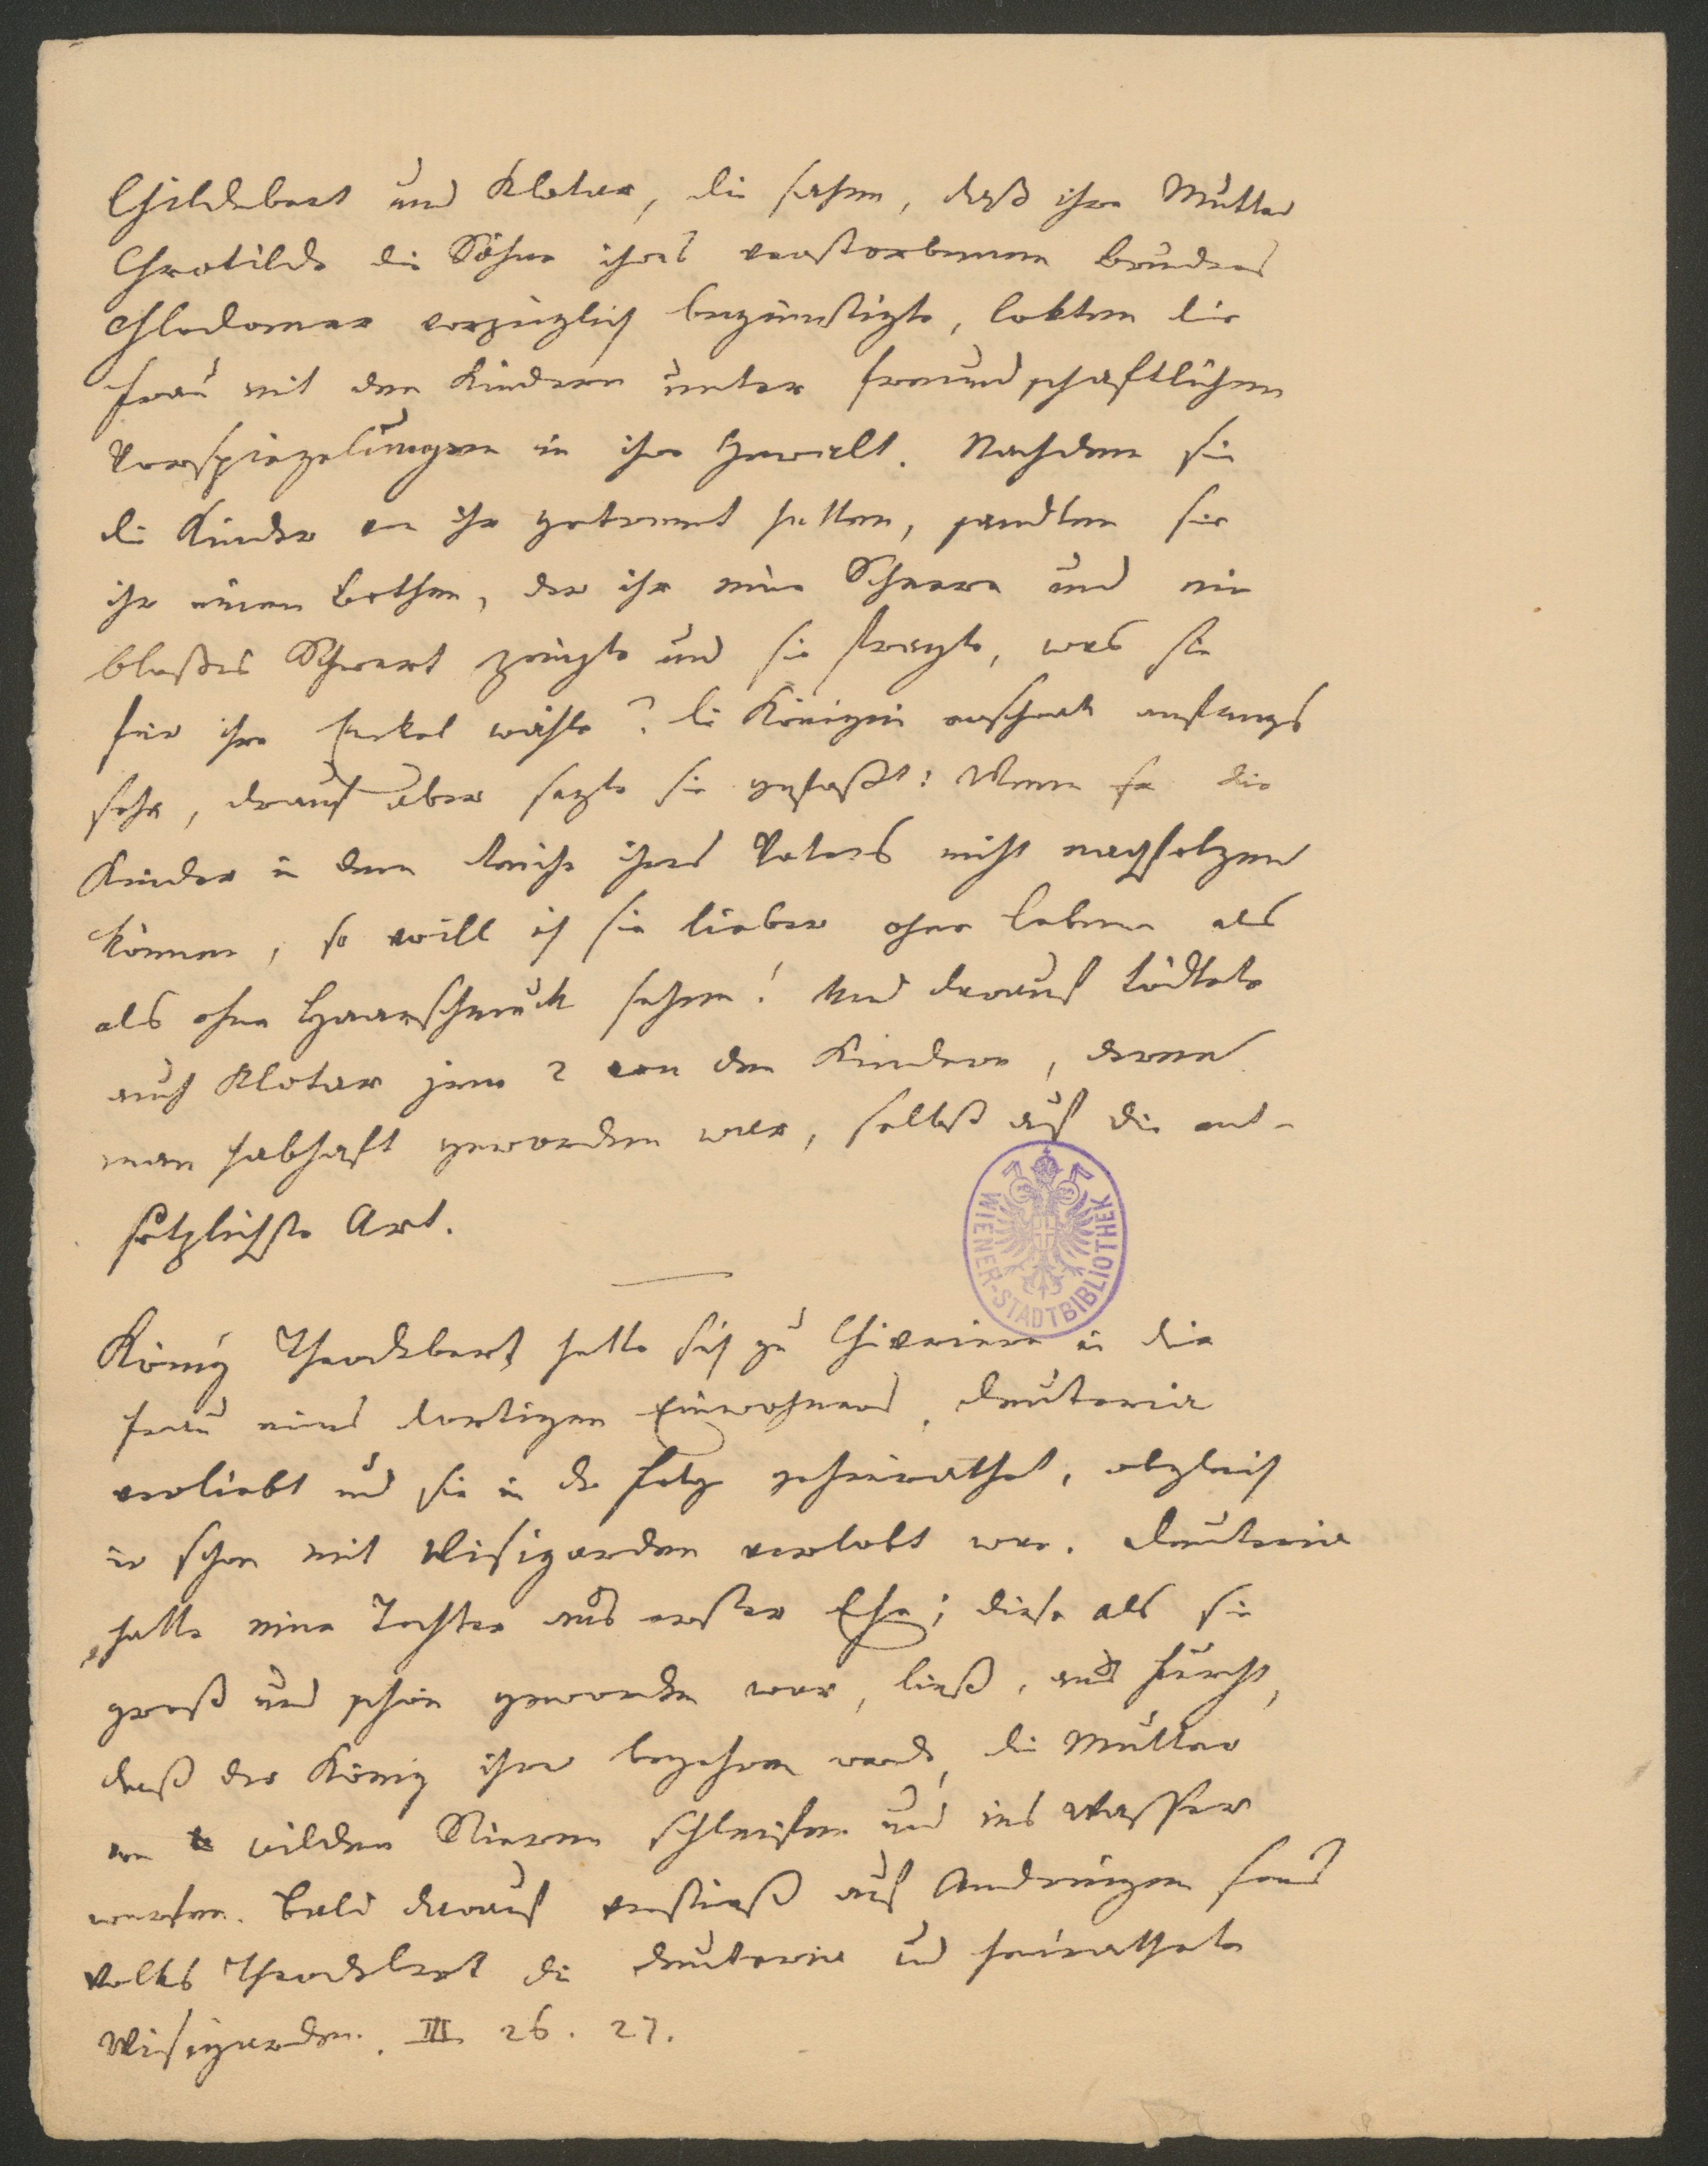 Childebert und Klotar, die sahen, daß ihre Mutter
Chrotilde die Söhne ihres verstorbenen Bruders
Chlodomar vorzüglich begünstigte, lokten die
Frau mit den Kindern unter freundschaftlichen
Vorspiegelungen in ihre Gewalt. Nachdem sie
die Kinder von ihr getrennt hatten, sandten sie
ihr einen Bothen, der ihr eine Scheere und ein
bloßes Schwert zeigte und sie fragte, was sie
für ihre Enkel wähle? die Königin erschrak anfangs
sehr, drauf aber sagte sie gefaßt: Wenn die
Kinder in dem Reiche ihres Vaters nicht nachfolgen
können, so will ich sie lieber ohne Leben als
als ohne Haarschmuck sehen! Und darauf tödtete
auch Klotar jene 2 von den Kindern, deren
man habhaft geworden war, selbst auf die ent-
setzlichste Art.
König Theodebert hatte sich zu Chievriere in die
Frau eines dortigen Einwohners, Deuteria
verliebt und sie in der Folge geheirathet, obgleich
er schon mit Wisigarden verlobt war. Deuteria
hatte eine Tochter aus erster Ehe; diese als sie
groß und schön geworden war, ließ, aus Furcht,
daß der König ihrer begehren werde, die Mutter
von wilden Stieren schleifen und ins Wasser
werfen. Bald darauf verstieß auf Andringen seines
Volks Theodebert die Deuteria und heirathete
Wisigarden. III. 26. 27.
WIENER-STADTBIBLIOTHEK